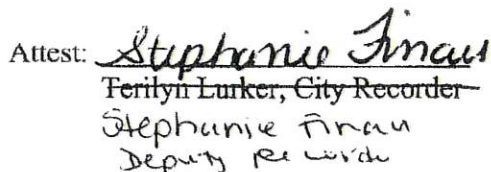 Attest: Stephanie Finau
Terilyn Lurker, City Recorder
Stephanie Finau
Deputy Recorder